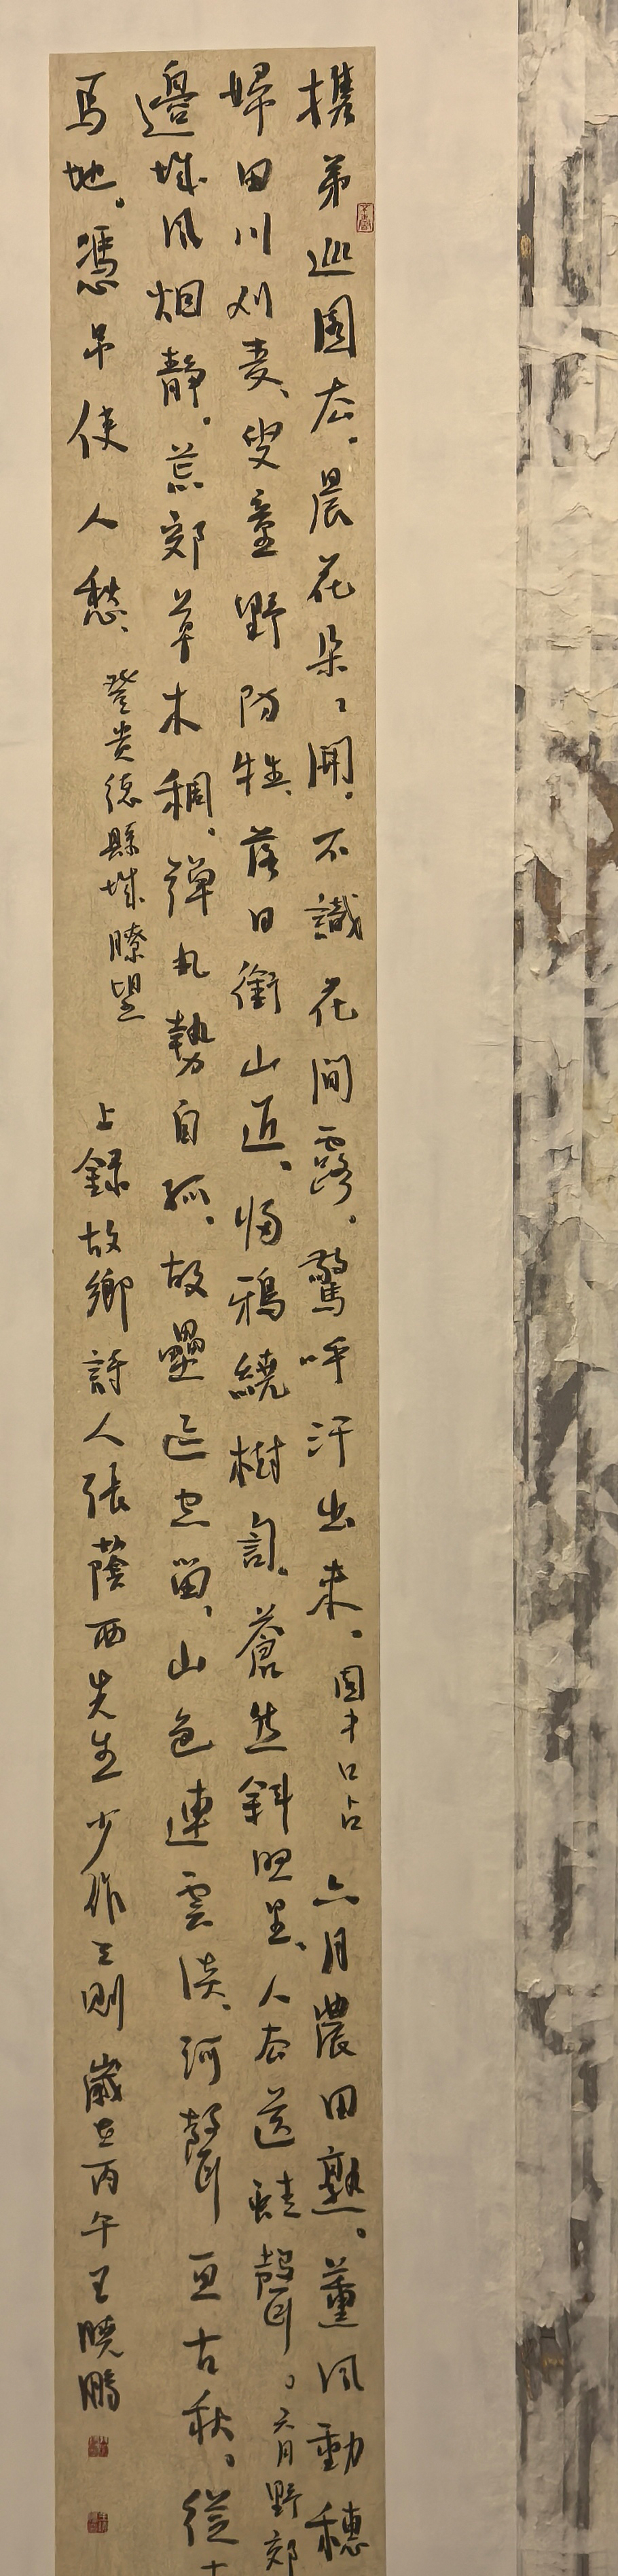 携弟巡園去。晨花朵〻開。不識花間露。驚呼汗出来。園中口占 六月農田熟。薰風動穗
婦田川刈麦、叟童野防牲、落日銜山近、歸鴉繞樹訇。蒼然斜照里、人去送蛙聲。六月野郊
邊城風烟静。荒郊草木稠、彈丸勢自孤。故壘迄空留、山色連雲淡、河聲亘古秋。從
馬地。憑吊使人愁、登贵德縣城瞭望 上録故鄉詩人張蔭西先生少作三則 歲在丙午王曉鵬